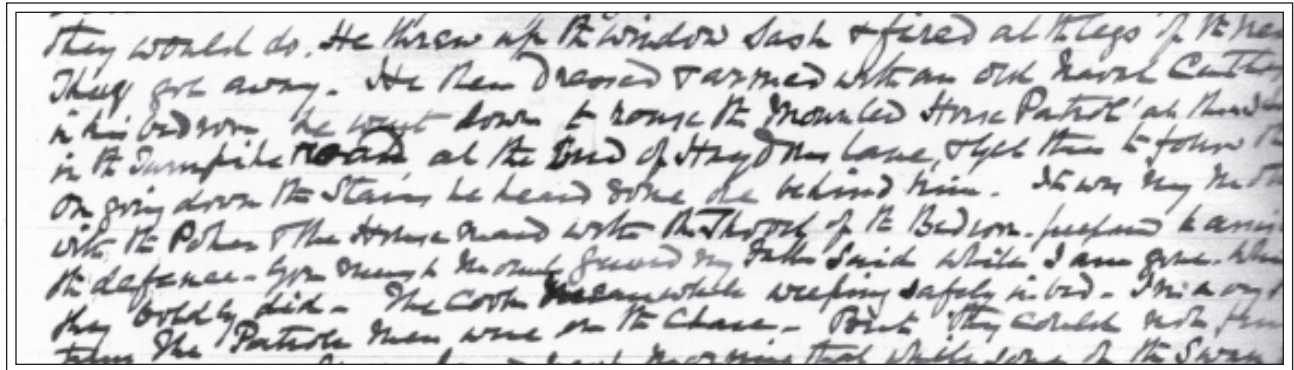 they would do. He threw up the window sash & fired at the legs of the
They got away. He then Dressed & armed with an old Naval
in his bedroom he went down to rouse the Mounted Horse Patrol at
in the Turnpike road at the End of Haydons lane, & get them to follow
on going down the Stairs he heard some one behind him. It was my
with the Poker & the House maid with the Shovel of the Bedroom. prepared to
the defence. You my Father Said while I am gone.
they boldly did. The Cook meanwhile weeping safely in bed. In
The Patrole Men were on the Chase. But they could not
morning that while some of the Swan